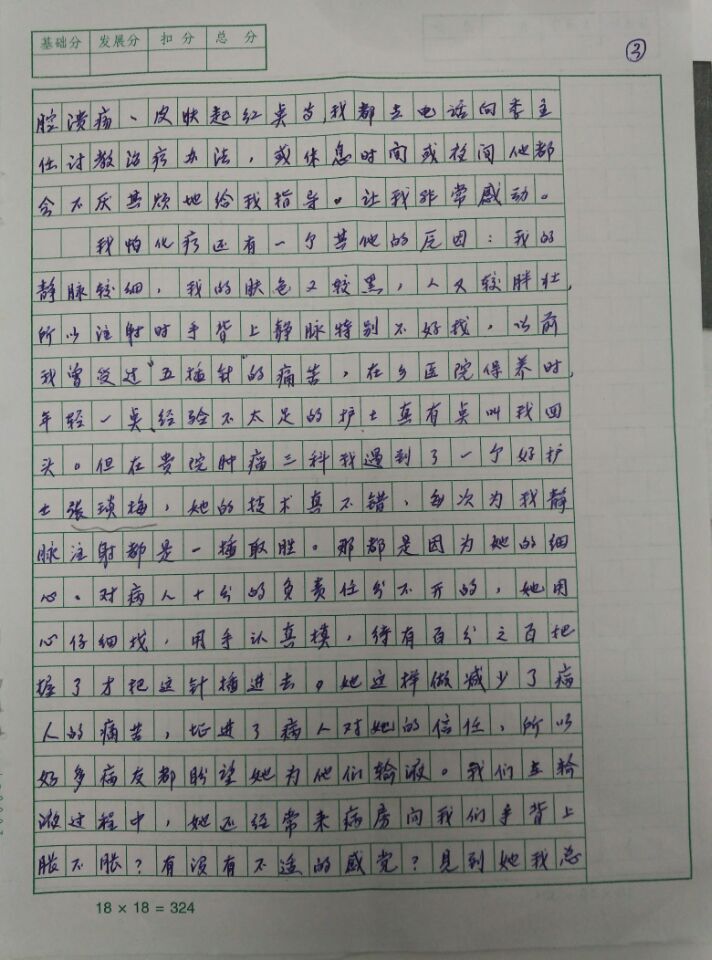 基础分 发展分 扣分 总分
③
腔溃疡、皮肤起红点等,我都去电话向李主
任讨教治疗办法,或休息时间或夜间他都
会不厌其烦地给我指导。让我非常感动。
我怕化疗还有一个其他的原因:我的
静脉较细,我的肤色又较黑,人又较胖壮,
所以注射时手背上静脉特别不好找,以前
我曾受过“五插针”的痛苦,在乡医院保养时,
年轻一点,经验不太足的护士真有点叫我回
头。但在贵院肿瘤三科我遇到了一个好护
士张琐梅,她的技术真不错,每次为我静
脉注射都是一插取胜。那都是因为她的细
心。对病人十分的负责任分不开的,她用
心仔细找,用手认真摸,待有百分之百把
握了才把这针插进去。她这样做减少了病
人的痛苦,增进了病人对她的信任,所以
好多病友都盼望她为他们输液。我们在输
液过程中,她还经常来病房问我们手背上
胀不胀?有没有不适的感觉?见到她我总
18 × 18 = 324